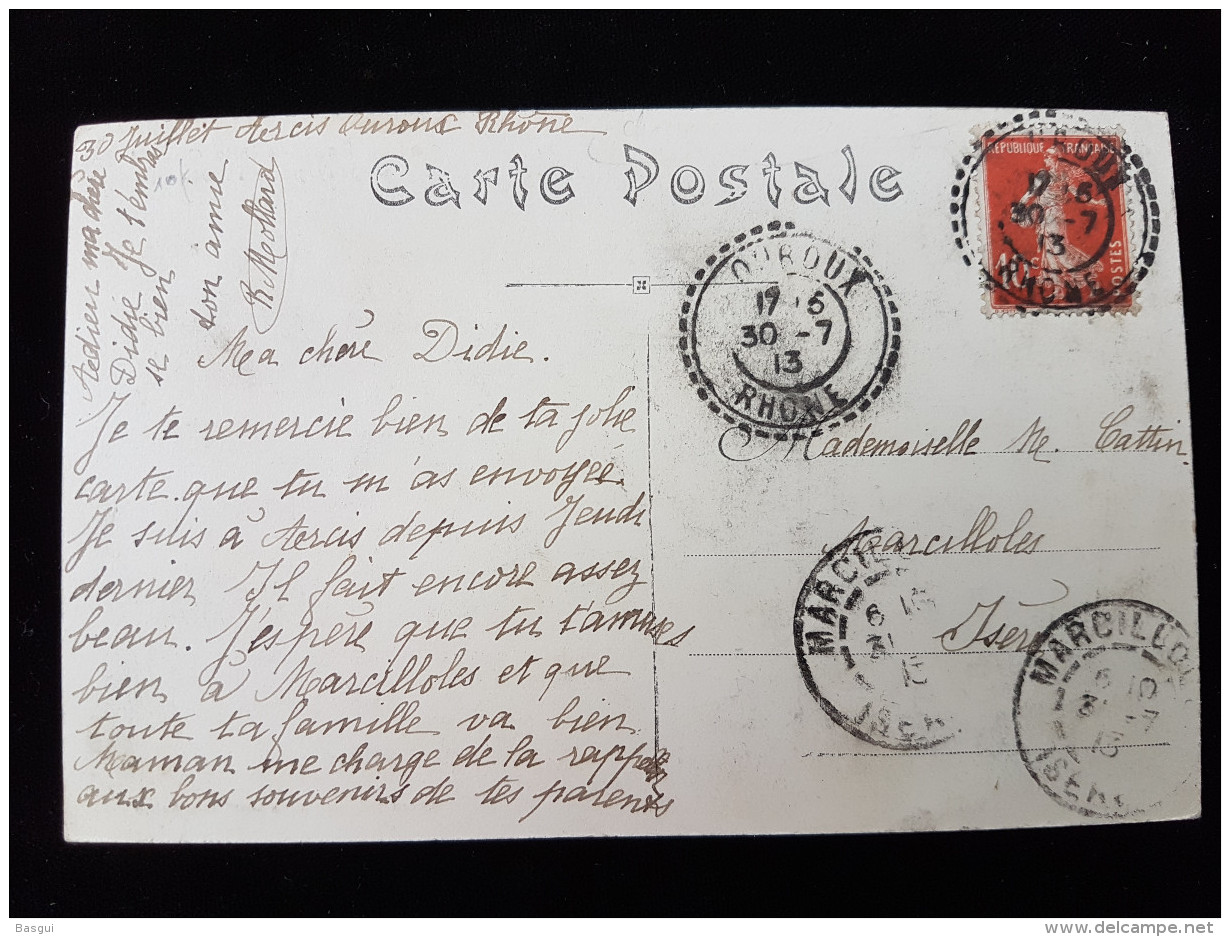 30 Juillet Aercis Ouroux Rhône
Carte Postale
REPUBLIQUE FRANÇAISE
10c
POSTES
OUROUX
17 6
30 -7
13
RHÔNE
OUROUX
17 6
30 -7
13
RHONE
Ma chère Didie.
Je te remercie bien de ta jolie
carte que tu m'as envoyée
Je suis à Aercis depuis Jeudi
dernier Il fait encore assez
beau. J'espère que tu t'amuses
bien à Marcilloles et que
toute ta famille va bien
Maman me charge de la rappeler
aux bons souvenirs de tes parents
Aedieu ma chère
Didie Je t'embras
se bien
ton amie
Mademoiselle M. Cattin
Marcilloles
Isère
MARCILLO
6 15
31
13
ISERE
MARCILLOL
6 15
31 -7
13
ISERE
10k
Basgui
delcampe.net